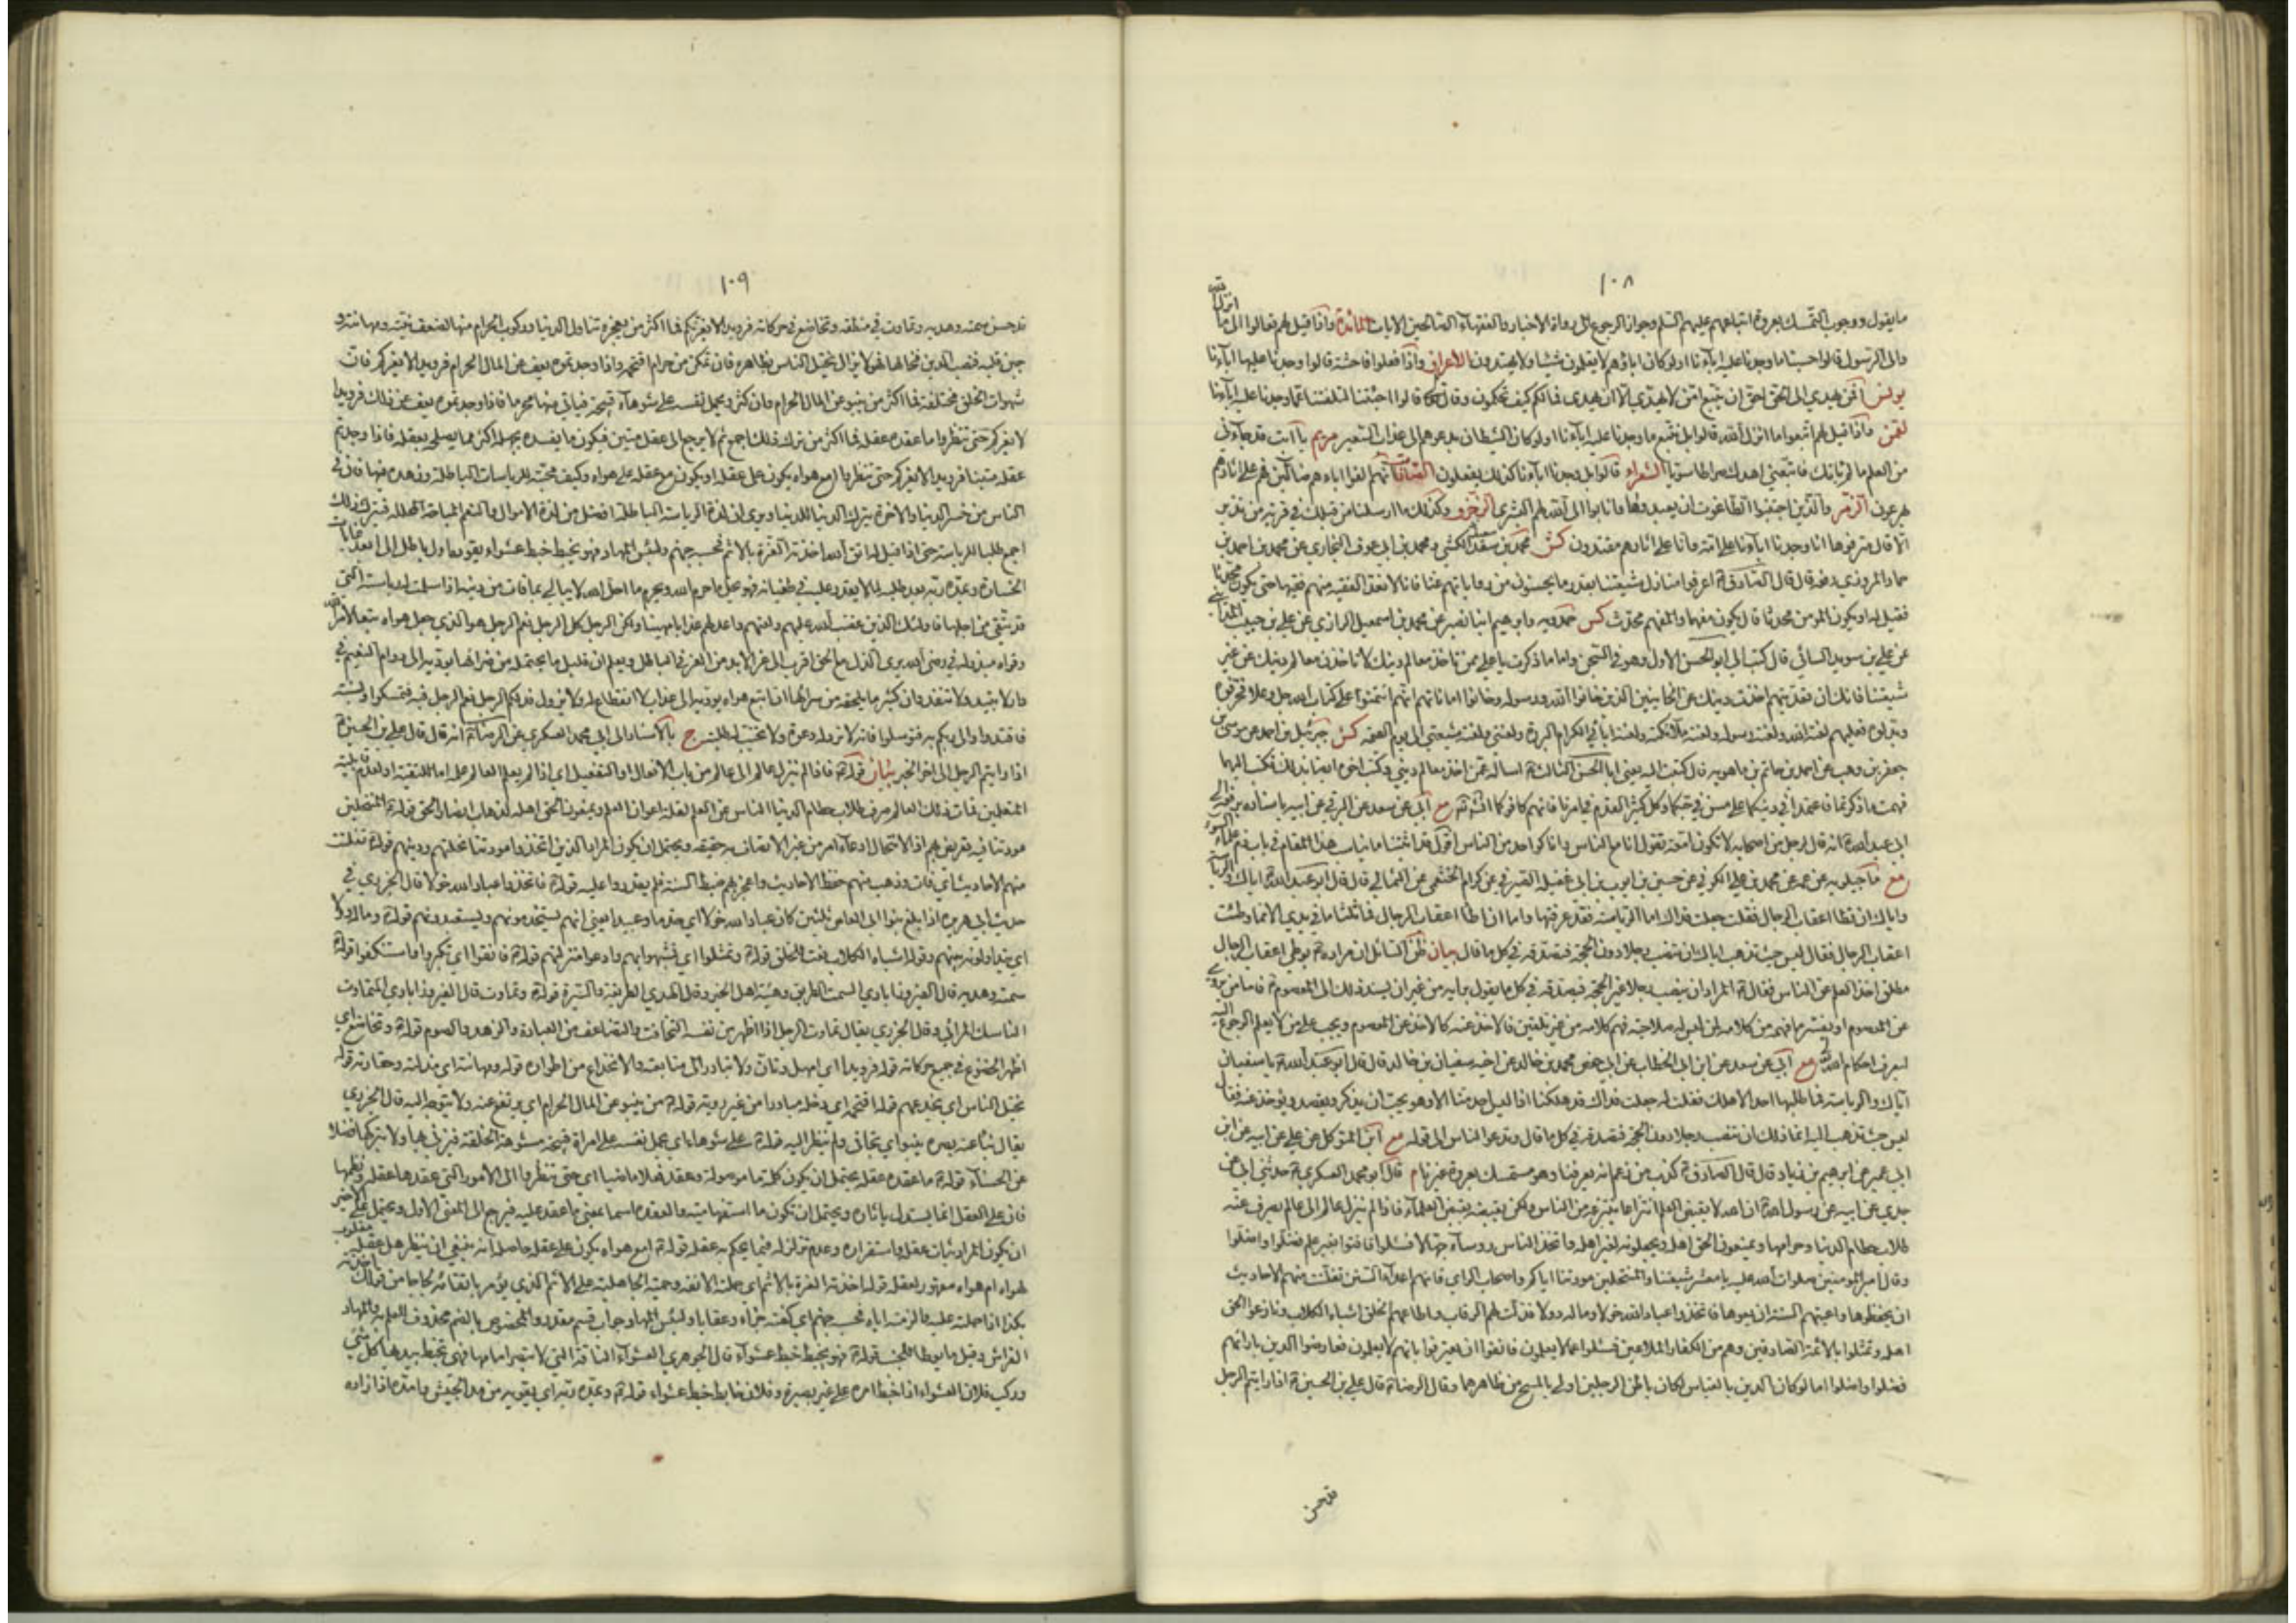 ١٠٨
ما يقول ووجوب التمسك بعروة اتباعهم عليهم السلم وجواز الرجوع الى رواة الاخبار والفقهاء الصالحين الايات المائدة واذا قيل لهم تعالوا الى ما انزل الله
والى الرسول قالوا حسبنا ما وجدنا عليه اباءنا اولو كان اباؤهم لا يعلمون شيئا ولا يهتدون الاعراف واذا فعلوا فاحشة قالوا وجدنا عليها اباءنا
يونس افمن يهدي الى الحق احق ان يتبع امن لا يهدي الا ان يهدى فما لكم كيف تحكمون وقال قالوا اجئتنا لتلفتنا عما وجدنا عليه اباءنا
لقمن واذا قيل لهم اتبعوا ما انزل الله قالوا بل نتبع ما وجدنا عليه اباءنا اولو كان الشيطان يدعوهم الى عذاب السعير مريم يا ابت قد جاءني
من العلم ما لم ياتك فاتبعني اهدك صراطا سويا الشعراء قالوا بل وجدنا اباءنا كذلك يفعلون الصافات انهم الفوا اباءهم ضالين فهم على اثارهم
يهرعون الزمر والذين اجتنبوا الطاغوت ان يعبدوها وانابوا الى الله لهم البشرى الزخرف وكذلك ما ارسلنا من قبلك في قرية من نذير
الا قال مترفوها انا وجدنا اباءنا على امة وانا على اثارهم مقتدون كش محمد بن سعد الكشي ومحمد بن ابي عوف البخاري عن محمد بن احمد بن
حماد المروزي رفعه قال قال الصادق ع اعرفوا منازل شيعتنا بقدر ما يحسنون من رواياتهم عنا فانا لا نعد الفقيه منهم فقيها حتى يكون محدثا
فقيل له او يكون المؤمن محدثا قال يكون مفهما والمفهم محدث كش حمدويه وابرهيم ابنا نصير عن محمد بن اسمعيل الرازي عن علي بن حبيب المدائني
عن علي بن سويد السائي قال كتب الي ابو الحسن الاول وهو في السجن واما ما ذكرت يا علي ممن تاخذ معالم دينك لا تاخذن معالم دينك عن غير
شيعتنا فانك ان تعديتهم اخذت دينك عن الخائنين الذين خانوا الله ورسوله وخانوا اماناتهم انهم ائتمنوا على كتاب الله جل وعلا فحرفوه
وبدلوه فعليهم لعنة الله ولعنة رسوله ولعنة ملائكته ولعنة ابائي الكرام البررة ولعنتي ولعنة شيعتي الى يوم القيمة كش جبرئيل بن احمد عن موسى بن
جعفر بن وهب عن احمد بن حاتم بن ماهويه قال كتبت اليه يعني ابا الحسن الثالث ع اساله عمن اخذ معالم ديني وكتب اخوه ايضا بذلك فكتب اليهما
فهمت ما ذكرتما فاعتمدا في دينكما على مسن في حبكما وكل كثير القدم في امرنا فانهم كافوكما انش تع مع ابي عن سعد عن البرقي عن ابيه باسناده يرفعه الى
ابي عبد الله ع انه قال لرجل من اصحابه لا تكون امعة تقول انا مع الناس وانا كواحد من الناس اقول قد اثبتنا ما يناسب هذا المقام في باب ذم علماء السوء
مع ماجيلويه عن عمه عن محمد بن علي الكوفي عن حسين بن ايوب بن ابي غفيلة الصيرفي عن كرام الخثعمي عن الثمالي قال قال ابو عبد الله ع اياك والرياسة
واياك ان تطا اعقاب الرجال فقلت جعلت فداك اما الرياسة فقد عرفتها واما ان اطا اعقاب الرجال فما ثلثا ما في يدي الا مما وطئت
اعقاب الرجال فقال ليس حيث تذهب اياك ان تنصب رجلا دون الحجة فتصدقه في كل ما قال بيان ظن السائل ان مراده ع بوطي اعقاب الرجال
مطلق اخذ العلم عن الناس فقال ع المراد ان تنصب رجلا غير الحجة فتصدقه في كل ما يقول برايه من غير ان يسند ذلك الى المعصوم ع فاما من يروي
عن المعصوم او يفسر ما فهمه من كلامه لمن ليس له صلاحية فهم كلامه من غير تلقين فالاخذ عنه كالاخذ عن المعصوم ويجب على من لا يعلم الرجوع اليه
ليعرف احكام الله مع ابي عن سعد عن ابن ابي الخطاب عن ابي حفص محمد بن خالد عن اخيه سفيان بن خالد قال قال ابو عبد الله ع يا سفيان
اياك والرياسة فما طلبها احد الا هلك فقلت له جعلت فداك قد هلكنا اذا ليس احد منا الا وهو يحب ان يذكر ويقصد ويؤخذ عنه فقال
ليس حيث تذهب اليه انما ذلك ان تنصب رجلا دون الحجة فتصدقه في كل ما قال وتدعو الناس الى قوله مع ابن المتوكل عن علي عن ابيه عن ابن
ابي عمير عن ابرهيم بن زياد قال قال الصادق ع كذب من زعم انه يعرفنا وهو مستمسك بعروة غيرنا م قال ابو محمد العسكري ع حدثني ابي عن
جدي عن ابيه عن رسول الله ص ان الله لا يقبض العلم انتزاعا ينتزعه من الناس ولكن يقبضه بقبض العلماء فاذا لم ينزل عالم الى عالم يصرف عنه
طلاب حطام الدنيا وحرامها ويمنعون الحق اهله ويجعلونه لغير اهله واتخذ الناس رؤساء جهالا فسئلوا فافتوا بغير علم فضلوا واضلوا
وقال امير المؤمنين صلوات الله عليه يا معشر شيعتنا والمنتحلين مودتنا اياكم واصحاب الراي فانهم اعداء السنن تفلتت منهم الاحاديث
ان يحفظوها واعيتهم السنة ان يعوها فاتخذوا عباد الله خولا وماله دولا فذلت لهم الرقاب واطاعهم الخلق اشباه الكلاب ونازعوا الحق
اهله وتمثلوا بالائمة الصادقين وهم من الكفار الملاعين فسئلوا عما لا يعلمون فانفوا ان يعترفوا بانهم لا يعلمون فعارضوا الدين بارائهم
فضلوا واضلوا اما لو كان الدين بالقياس لكان باطن الرجلين اولى بالمسح من ظاهرهما وقال الرضا ع قال علي بن الحسين ع اذا رايتم الرجل
قد حسن
١٠٩
قد حسن سمته وهديه وتماوت في منطقه وتخاضع في حركاته فرويدا لا يغرنكم فما اكثر من يعجزه تناول الدنيا وركوب الحرام منها لضعف نيته ومهانته و
جبن قلبه فنصب الدين فخا لها فهو لا يزال يختل الناس بظاهره فان تمكن من حرام اقتحمه واذا وجدتموه يعف عن المال الحرام فرويدا لا يغركم فان
شهوات الخلق مختلفة فما اكثر من ينبو عن المال الحرام وان كثر ويحمل نفسه على شوهاء قبيحة فياتي منها محرما فاذا وجدتموه يعف عن ذلك فرويدا
لا يغركم حتى تنظروا ما عقده عقله فما اكثر من ترك ذلك اجمع ثم لا يرجع الى عقل متين فيكون ما يفسده بجهله اكثر مما يصلحه بعقله فاذا وجدتم
عقله متينا فرويدا لا يغركم حتى تنظروا امع هواه يكون على عقله او يكون مع عقله على هواه وكيف محبته للرياسات الباطلة وزهده فيها فان في
الناس من خسر الدنيا والاخرة يترك الدنيا للدنيا ويرى ان لذة الرياسة الباطلة افضل من لذة الاموال والنعم المباحة المحللة فيترك ذلك
اجمع طلبا للرياسة حتى اذا قيل له اتق الله اخذته العزة بالاثم فحسبه جهنم ولبئس المهاد فهو يخبط خبط عشواء يقوده اول باطل الى ابعد غايات
الخسارة ويمده ربه بعد طلبه لما لا يقدر عليه في طغيانه فهو يحل ما حرم الله ويحرم ما احل الله لا يبالي بما فات من دينه اذا سلمت له رياسته التي
قد شقي من اجلها فاولئك الذين غضب الله عليهم ولعنهم واعد لهم عذابا مهينا ولكن الرجل كل الرجل نعم الرجل هو الذي جعل هواه تبعا لامر الله
وقواه مبذولة في رضى الله يرى الذل مع الحق اقرب الى عز الابد من العز في الباطل ويعلم ان قليل ما يحتمله من ضرائها يؤديه الى دوام النعيم في
دار لا تبيد ولا تنفد وان كثير ما يلحقه من سرائها ان اتبع هواه يؤديه الى عذاب لا انقطاع له ولا يزول فذلكم الرجل نعم الرجل فبه فتمسكوا وبسنته
فاقتدوا والى ربكم به فتوسلوا فانه لا ترد له دعوة ولا تخيب له طلبة ج بالاسناد الى ابي محمد العسكري عن الرضا ع انه قال قال علي بن الحسين ع
اذا رايتم الرجل الى اخر الخبر بيان قوله ع فاذا لم ينزل عالم الى عالم من باب الافعال او التفعيل اي اذا لم يعلم العالم علمه اما للتقية او لعدم قابلية
المتعلمين فمات ذلك العالم صرف طلاب حطام الدنيا الناس عن العلم لقلة اعوان العلم ويمنعون الحق اهله لذهاب انصار الحق قوله ع المنتحلين
مودتنا فيه تعريض بهم اذ الانتحال ادعاء امر من غير الاتصاف به حقيقة ويحتمل ان يكون المراد الذين اتخذوا مودتنا نحلتهم ودينهم قوله ع تفلتت
منهم الاحاديث اي فات وذهب منهم حفظ الاحاديث واعجزهم ضبط السنة فلم يقدروا عليه قوله ع فاتخذوا عباد الله خولا قال الجزري في
حديث ابي هريره اذا بلغ بنوا ابي العاص ثلثين كان عباد الله خولا اي خدما وعبيدا يعني انهم يستخدمونهم ويستعبدونهم قوله ع وماله دولا
اي يتداولونه بينهم وقوله اشباه الكلاب نعت للخلق قوله ع وتمثلوا اي تشبهوا بهم وادعوا منزلتهم قوله ع فانفوا اي تكبروا واستنكفوا قوله ع
سمته وهديه قال الفيروزابادي السمت الطريق وهيئة اهل الخير وقال الهدي الطريقة والسيرة قوله ع وتماوت قال الفيروزابادي المتماوت
الناسك المرائي وقال الجزري يقال تماوت الرجل اذا اظهر من نفسه التخافت والتضاعف من العبادة والزهد والصوم قوله ع وتخاضع اي
اظهر الخضوع في جميع حركاته قوله فرويدا اي امهل وتان ولا تبادر الى متابعته والانخداع من اطواره قوله ومهانته اي مذلته وحقارته قوله
يختل الناس اي يخدعهم قوله اقتحمه اي دخله مبادرا من غير روية قوله ع من ينبو عن المال الحرام اي يرتفع عنه ولا يتوجه اليه قال الجزري
يقال نبا عنه بصره ينبو اي تجافى ولم ينظر اليه قوله ع على شوهاء اي يحمل نفسه على امراة قبيحة مشوهة الخلقة فيزني بها ولا يتركها فضلا
عن الحسناء قوله ع ما عقده عقله يحتمل ان يكون كلمة ما موصولة وعقد فعلا ماضيا اي حتى تنظروا الى الامور التي عقدها عقله ونظمها
فان على العقل انما يستدل باثاره ويحتمل ان تكون ما استفهامية والعقدة اسما بمعنى ما عقد عليه فيرجع الى المعنى الاول ويحتمل على الاخير
ان يكون المراد ثبات عقله واستقراره وعدم تزلزله فيما يحكم به عقله قوله ع امع هواه يكون على عقله حاصله انه ينبغي ان ينظر هل عقله مغلوب
لهواه ام هواه مقهور لعقله قوله اخذته العزة بالاثم اي حملته الانفة وحمية الجاهلية على الاثم الذي يؤمر باتقائه لجاجا من قولك اخذته
بكذا اذا حملته عليه والزمته اياه فحسبه جهنم اي كفته جزاء وعقابا ولبئس المهاد جواب قسم مقدر والمخصوص بالذم محذوف للعلم به والمهاد
الفراش وقيل ما يوطا للجنب قوله ع فهو يخبط خبط عشواء قال الجوهري العشواء الناقة التي لا تبصر امامها فهي تخبط بيديها كل شيء
وركب فلان العشواء اذا خبط امره على غير بصيرة وفلان خابط خبط عشواء قوله ع ويمده ربه اي يقويه من مد الجيش وامده اذا زاده